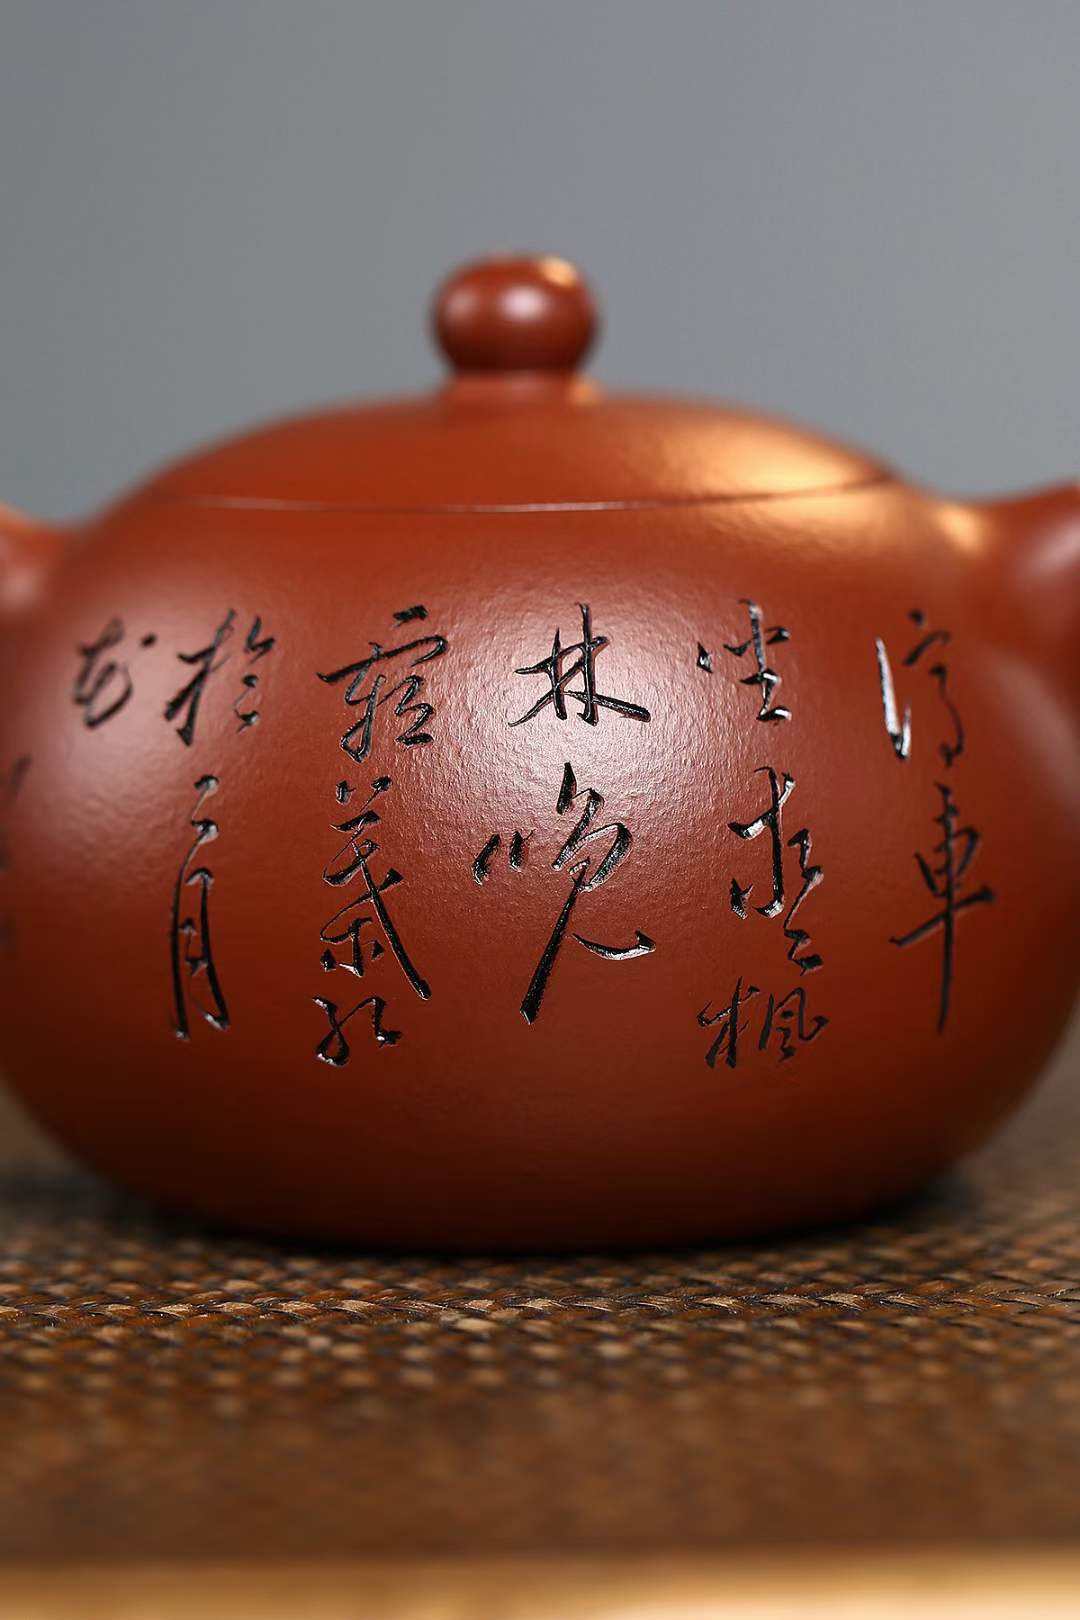 停車
坐愛楓
林晚
霜葉紅
於二月
花